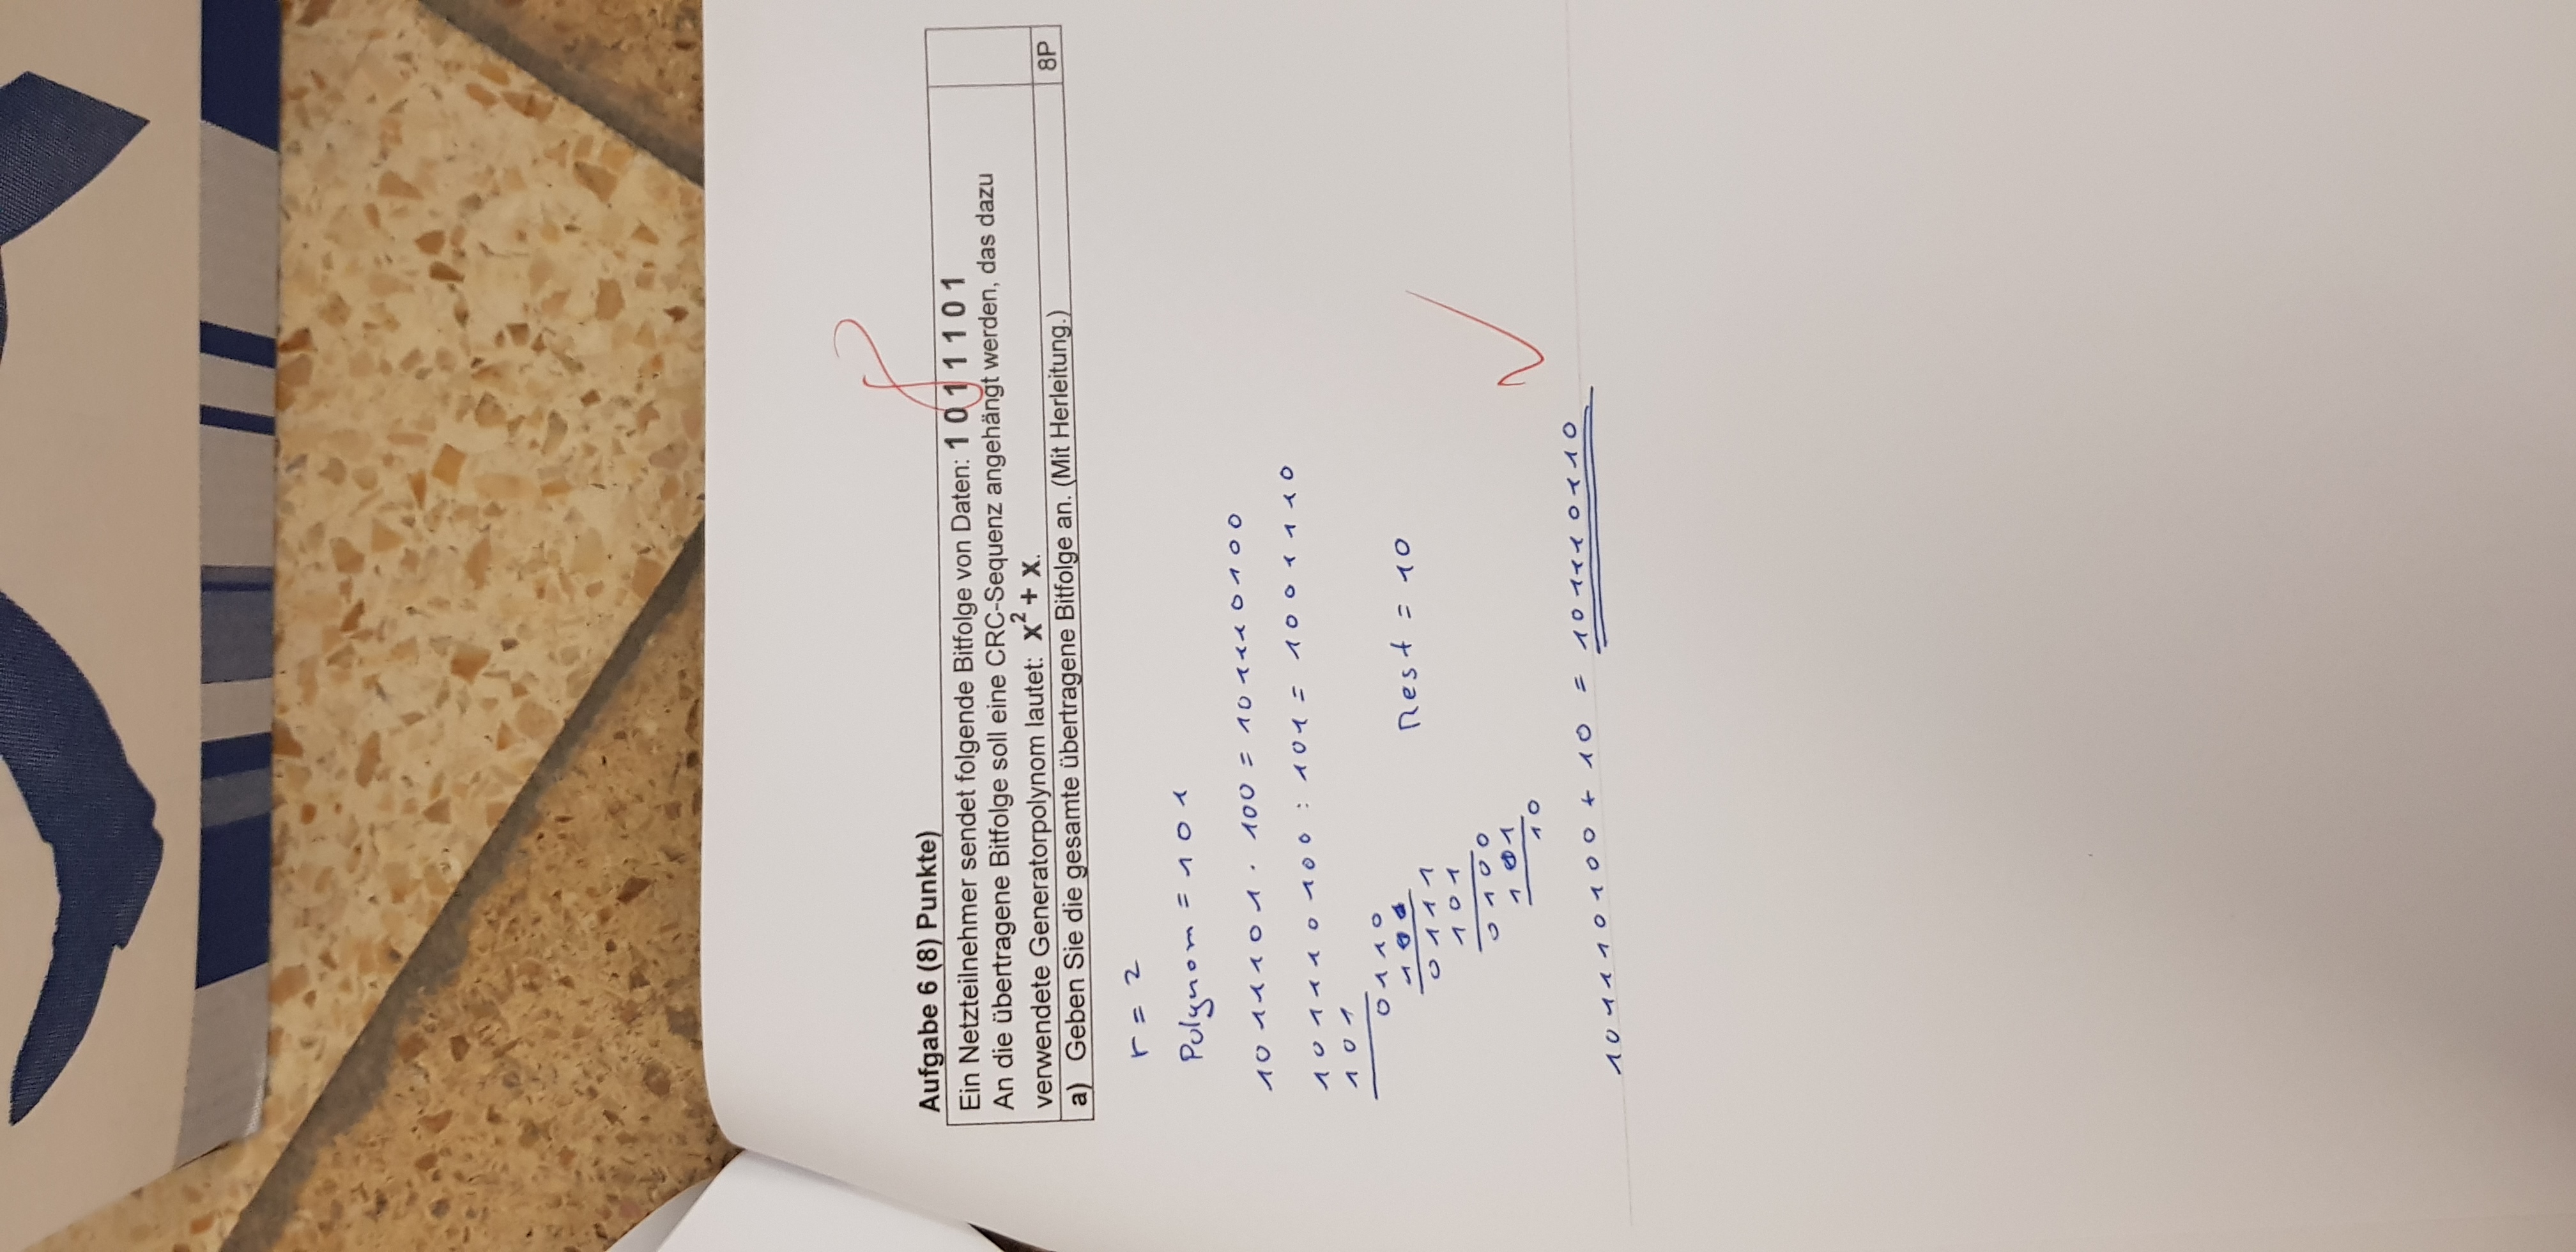 8
Aufgabe 6 (8) Punkte)
Ein Netzteilnehmer sendet folgende Bitfolge von Daten: 1 0 1 1 1 0 1
An die übertragene Bitfolge soll eine CRC-Sequenz angehängt werden, das dazu
verwendete Generatorpolynom lautet: x² + x.
a) Geben Sie die gesamte übertragene Bitfolge an. (Mit Herleitung.) 8P
r = 2
Polynom = 101
1011101 . 100 = 101110100
101110100 : 101 = 1001110
101
0110
0111
101
0100
101
10
Rest = 10
101110100 + 10 = 101110110